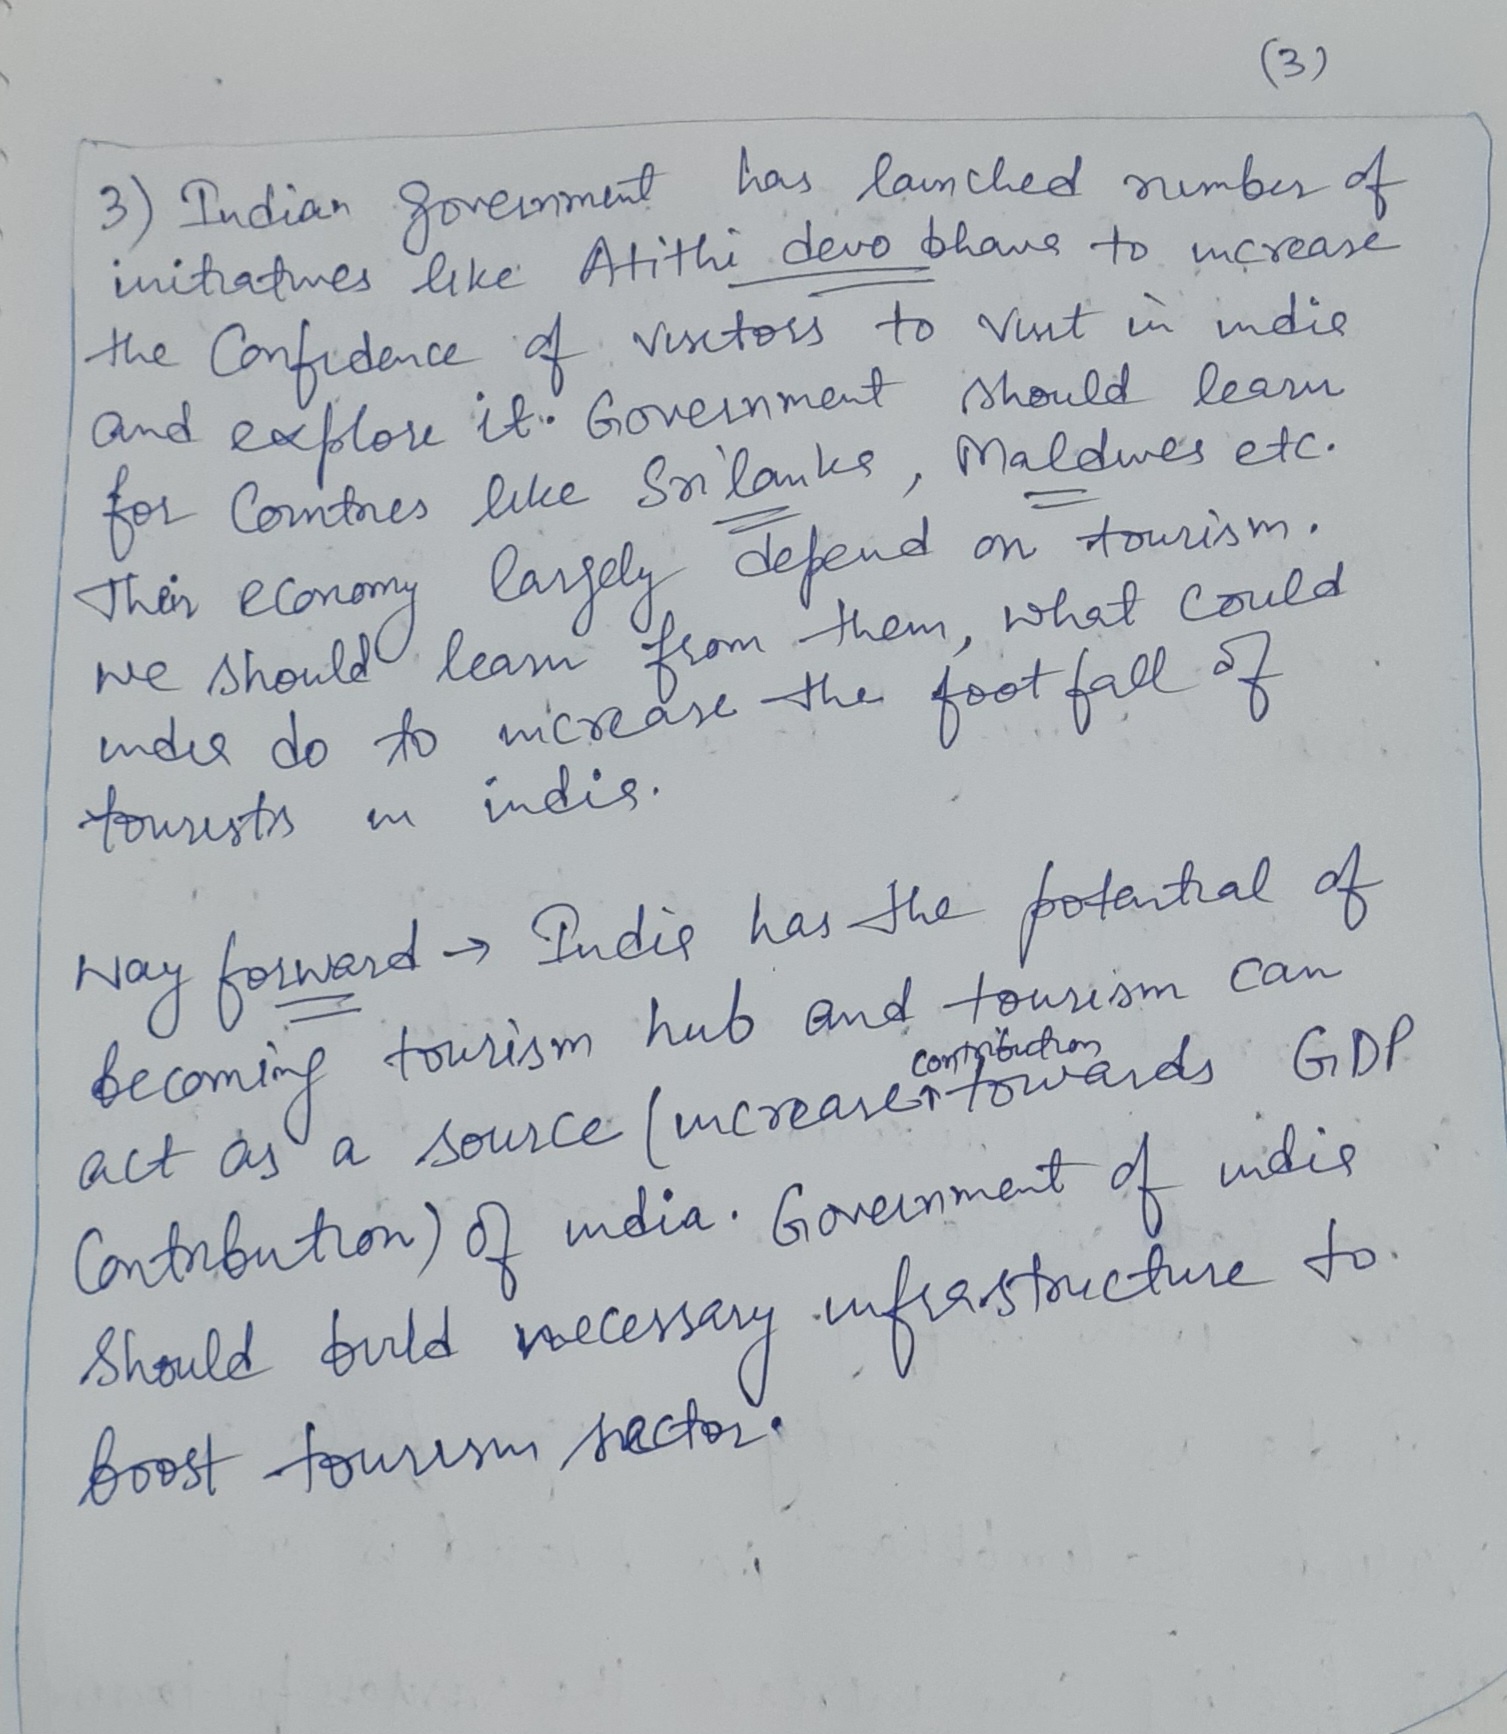 (3)
3) Indian government has launched number of
initiatives like Atithi devo bhava to increase
the Confidence of visitors to visit in india
and explore it. Government should learn
for Countries like Sri lanka, Maldives etc.
Their economy largely depend on tourism.
we should learn from them, what could
india do to increase the footfall of
tourists in india.
Way forward → India has the potential of
becoming tourism hub and tourism can
contribution
act as a source (increase towards GDP
Contribution) of india. Government of india
should build necessary infrastructure to
boost tourism sector.